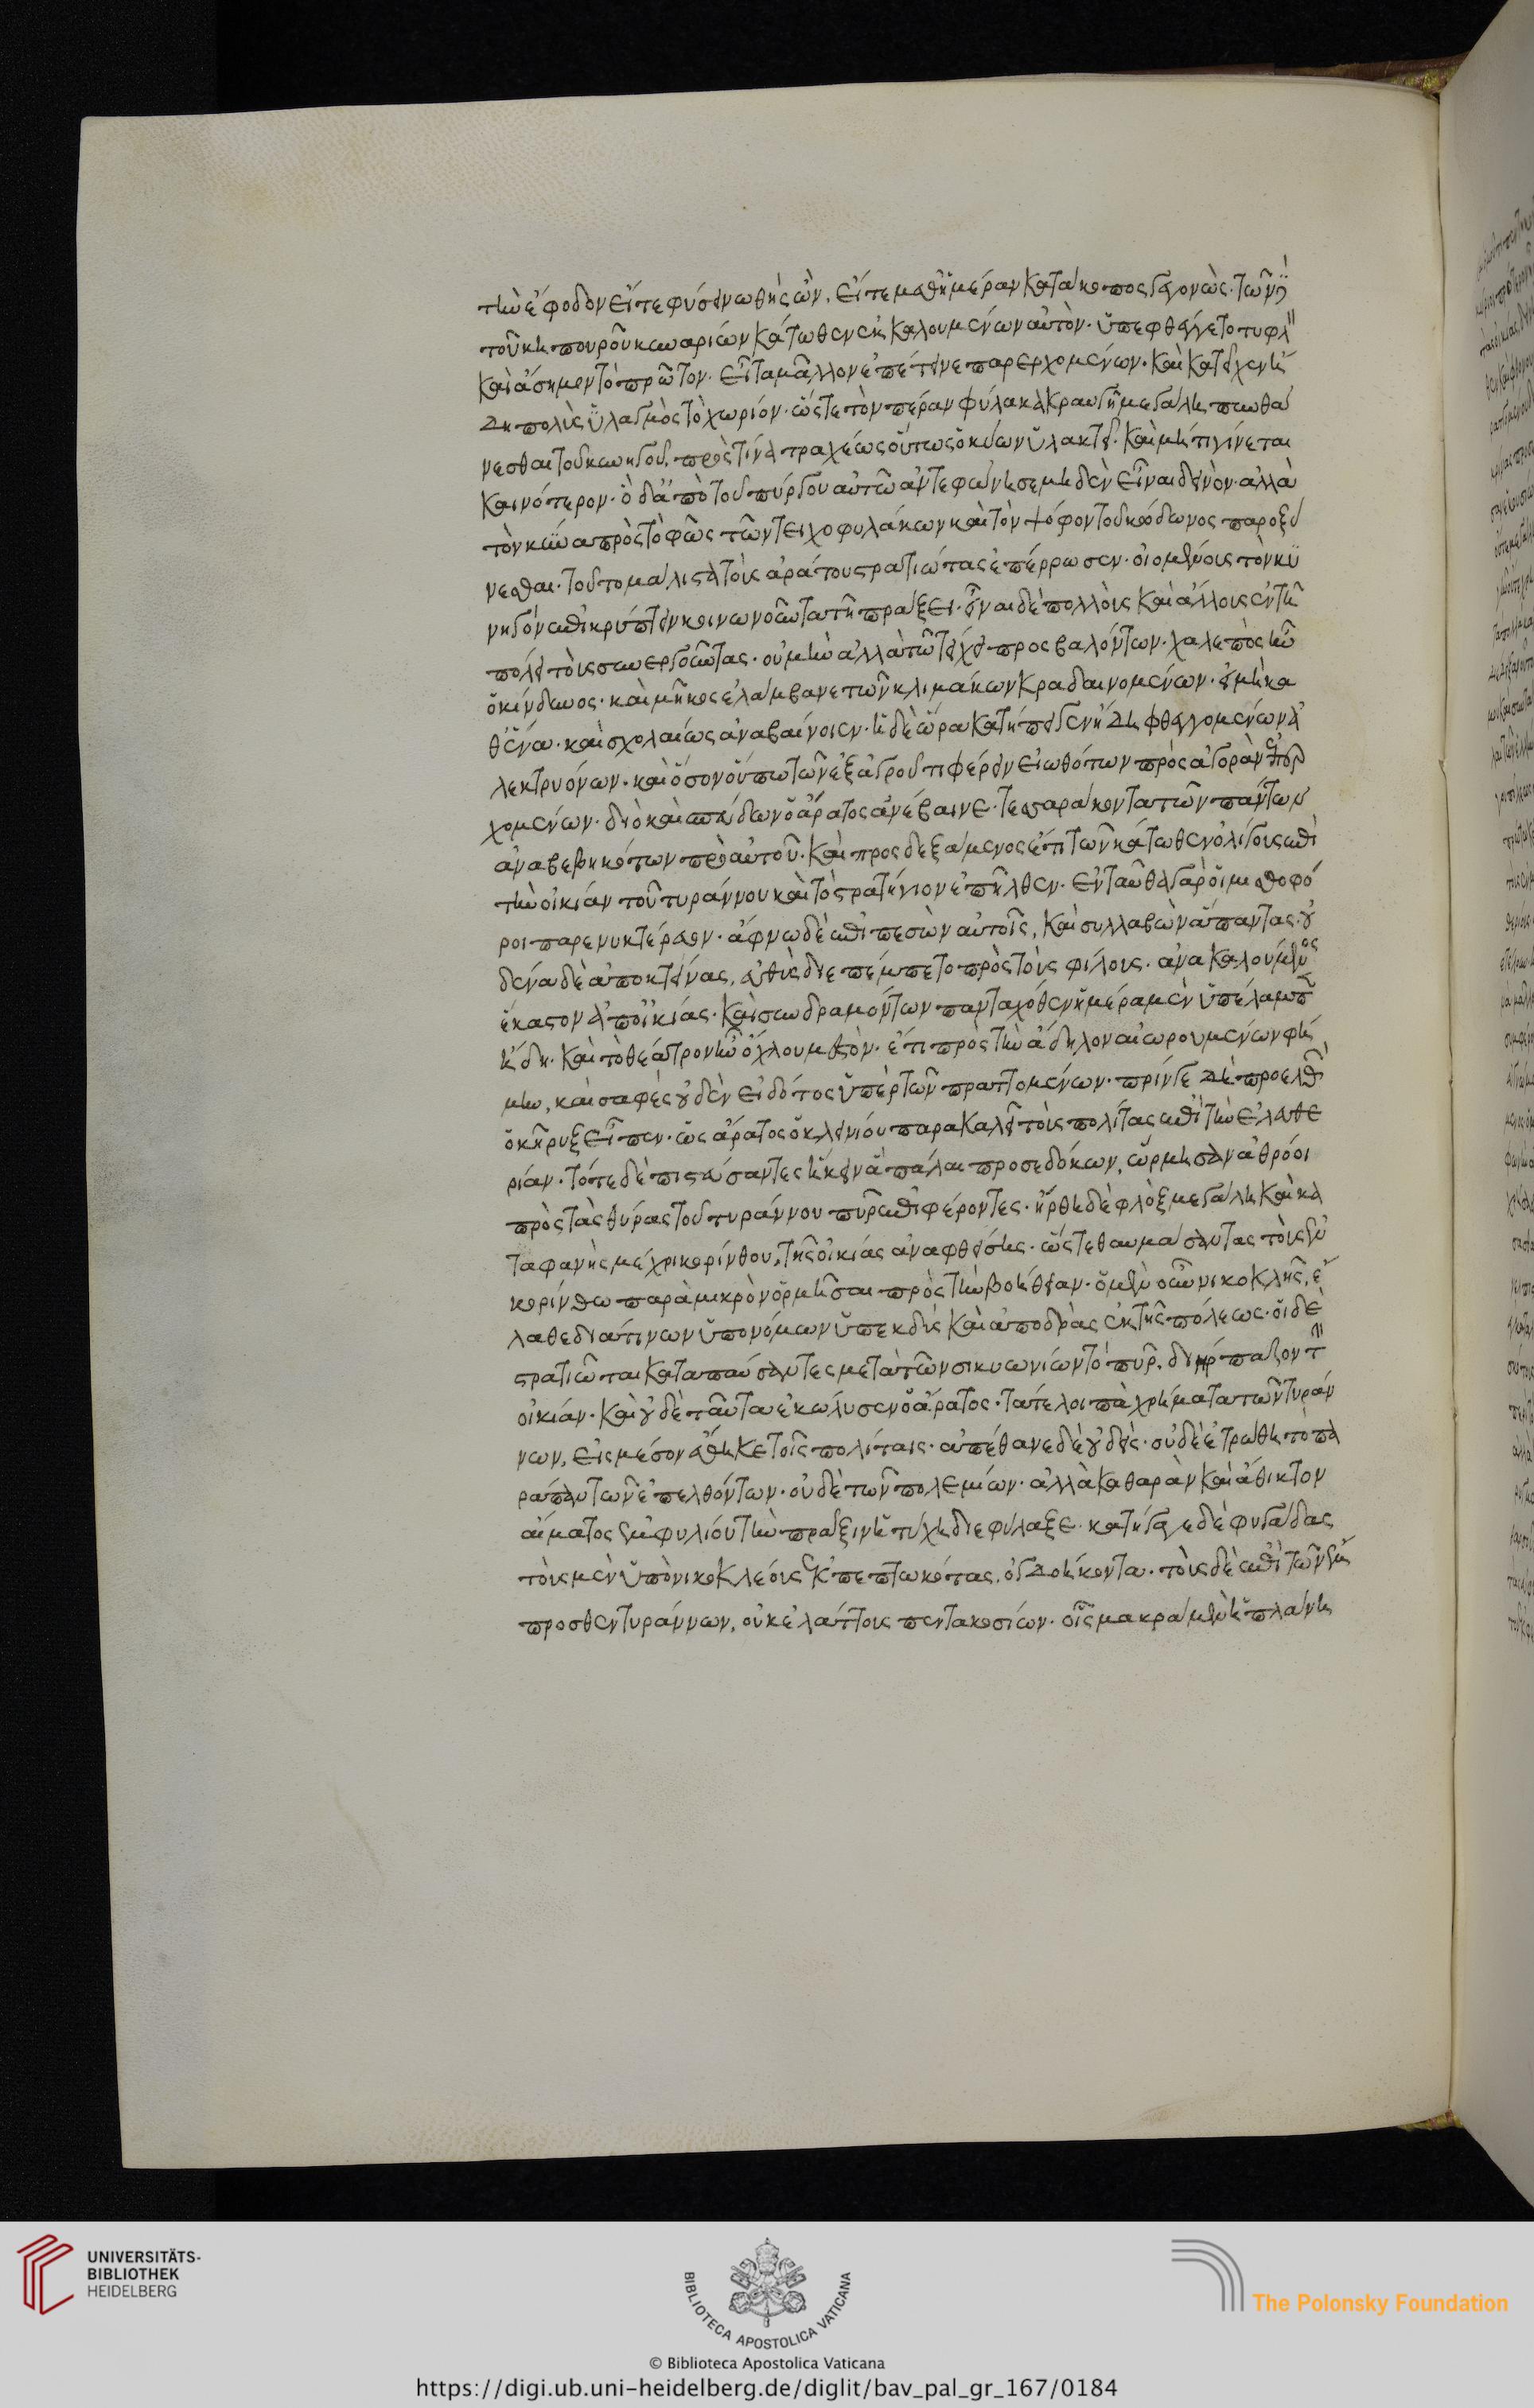 τὴν ἔφοδον εἴτε φύσει νωθὴς ὢν, εἴτε μεθ' ἡμέραν κατάκοπος γεγονὼς. τῶν δὲ
τοῦ κηπουροῦ κυναρίων κάτωθεν ἐκκαλουμένων αὐτὸν. ὑπεφθέγγετο τυφλὸν
καὶ ἄσημον τὸ πρῶτον. εἶτα μᾶλλον ἐπέτεινε παρερχομένων. καὶ κατεῖχεν ἤ
δη πολὺς ὑλαγμὸς τὸ χωρίον. ὥστε τὸν πέραν φύλακα κραυγῇ μεγάλῃ πυνθά
νεσθαι τοῦ κυνηγοῦ, πρὸς τίνα τραχέως οὕτως ὁ κύων ὑλακτεῖ. καὶ μή τι γίνεται
καινότερον. ὁ δ' ἀπὸ τοῦ πύργου αὐτῷ ἀντεφώνησε μηδὲν εἶναι δεινὸν. ἀλλὰ
τὸν κύνα πρὸς τὸ φῶς τῶν τειχοφυλάκων καὶ τὸν ψόφον τοῦ κώδωνος παροξύ
νεσθαι. τοῦτο μάλιστα τοὺς ἀράτου στρατιώτας ἐπέρρωσεν. οἰομένους τὸν κυ
νηγὸν ἐπικρύπτειν κοινωνοῦντα τῇ πράξει. εἶναι δὲ πολλοὺς καὶ ἄλλους ἐν τῇ
πόλει τοὺς συνεργοῦντας. οὐ μὴν ἀλλὰ τῷ τείχει προσβαλόντων. χαλεπὸς ἦν
ὁ κίνδυνος. καὶ μῆκος ἐλάμβανε τῶν κλιμάκων κραδαινομένων. εἰ μὴ κα
θ' ἕνα. καὶ σχολαίως ἀναβαίνοιεν. ἡ δὲ ὥρα κατήπειγεν ἤδη φθεγγομένων ἀ
λεκτρυόνων. καὶ ὅσον οὔπω τῶν ἐξ ἀγροῦ τι φέρειν εἰωθότων πρὸς ἀγορὰν ἐπερ
χομένων. διὸ καὶ σπεύδων ὁ ἄρατος ἀνέβαινε. τεσσαράκοντα τῶν πάντων
ἀναβεβηκότων πρὸ αὐτοῦ. καὶ προσδεξάμενος ἔτι τῶν κάτωθεν ὀλίγους ἐπὶ
τὴν οἰκίαν τοῦ τυράννου καὶ τὸ στρατήγιον ἐπῆλθεν. ἐνταῦθα γὰρ οἱ μισθοφό
ροι παρενυκτέρευον. ἄφνω δὲ ἐπιπεσὼν αὐτοῖς, καὶ συλλαβὼν ἅπαντας. οὐ
δένα δὲ ἀποκτείνας, εὐθὺς διεπέμπετο πρὸς τοὺς φίλους. ἀνακαλούμενος
ἕκαστον ἀπ' οἰκίας. καὶ συνδραμόντων πανταχόθεν ἡμέρα μὲν ὑπέλαμπεν
ἤδη. καὶ τὸ θέατρον ἦν ὄχλου μεστὸν. ἔτι πρὸς τὴν ἄδηλον αἰωρουμένων φή
μην, καὶ σαφὲς οὐδὲν εἰδότος ὑπὲρ τῶν πραττομένων. πρίν γε δὴ προελθὼν
ὁ κῆρυξ εἶπεν. ὡς ἄρατος ὁ κλεινίου παρακαλεῖ τοὺς πολίτας ἐπὶ τὴν ἐλευθε
ρίαν. τότε δὲ πιστεύσαντες ἥκειν ἃ πάλαι προσεδόκων, ὥρμησαν ἀθρόοι
πρὸς τὰς θύρας τοῦ τυράννου πῦρ ἐπιφέροντες. ἤρθη δὲ φλὸξ μεγάλη καὶ κα
ταφανὴς μέχρι κορίνθου, τῆς οἰκίας ἀναφθείσης. ὥστε θαυμάσαντας τοὺς ἐν
κορίνθῳ παρὰ μικρὸν ὁρμῆσαι πρὸς τὴν βοήθειαν. ὁ μὲν οὖν νικοκλῆς, ἔ
λαθε διά τινων ὑπονόμων ὑπεκδὺς καὶ ἀποδρὰς ἐκ τῆς πόλεως. οἱ δὲ
στρατιῶται καταπαύσαντες μετὰ τῶν σικυωνίων τὸ πῦρ, διήρπαζον τὴν
οἰκίαν. καὶ οὐδὲ ταῦτα ἐκώλυσεν ὁ ἄρατος. τά τε λοιπὰ χρήματα τῶν τυράν
νων, εἰς μέσον ἔθηκε τοῖς πολίταις. ἀπέθανε δὲ οὐδεὶς. οὐδὲ ἐτρώθη τὸ πα
ράπαν τῶν ἐπελθόντων. οὐδὲ τῶν πολεμίων. ἀλλὰ καθαρὰν καὶ ἄθικτον
αἵματος ἐμφυλίου τὴν πρᾶξιν ἡ τύχη διεφύλαξε. κατήγαγε δὲ φυγάδας
τοὺς μὲν ὑπὸ νικοκλέους ἐκπεπτωκότας, ὀγδοήκοντα. τοὺς δὲ ἐπὶ τῶν ἔμ
προσθεν τυράννων, οὐκ ἐλάττους πεντακοσίων. οἷς μακρὰ μὲν ἡ πλάνη
UNIVERSITÄTS-
BIBLIOTHEK
HEIDELBERG
BIBLIOTECA APOSTOLICA VATICANA
The Polonsky Foundation
© Biblioteca Apostolica Vaticana
https://digi.ub.uni-heidelberg.de/diglit/bav_pal_gr_167/0184